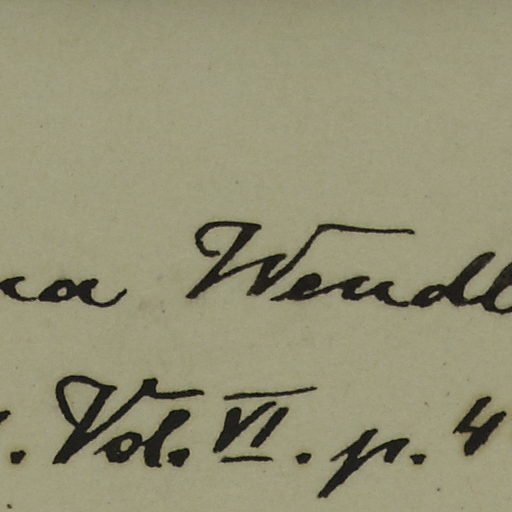 na Wendl
. Vol. VI. p. 4